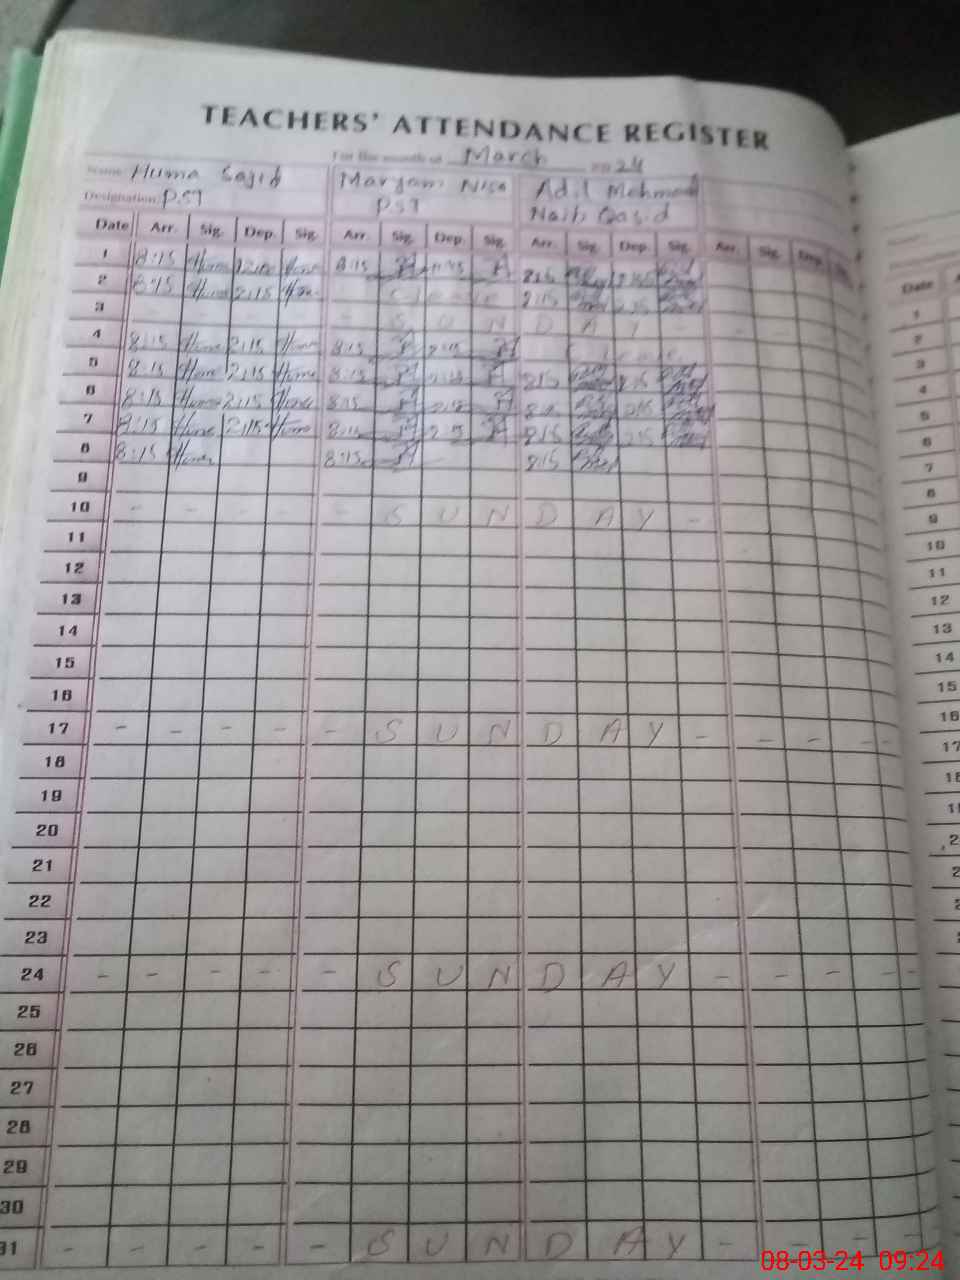 TEACHERS' ATTENDANCE REGISTER
For the month of March 2024
Name Huma Sajid Maryam Nisa Adil Mehmood
Designation PST PST Naib Qasid
Date Arr. Sig. Dep. Sig. Arr. Sig. Dep. Sig. Arr. Sig. Dep. Sig. Arr. Sig. Dep.
1 8:15 Huma Huma 8:15
2 8:15 Huma 2:15 Huma C Leave 8:15
3 - - - - - S U N D A Y - - -
4 8:15 Huma 2:15 Huma 8:15 2:15 C Leave
5 8:15 Huma 2:15 Huma 8:15 8:15
6 8:15 Huma 2:15 Huma 8:15 2:15
7 8:15 Huma 2:15 Huma 8:15 8:15 2:15
8 8:15 Huma 8:15 8:15
9
10 - - - - - S U N D A Y -
11
12
13
14
15
16
17 - - - - - S U N D A Y - - - -
18
19
20
21
22
23
24 - - - - - S U N D A Y - - - -
25
26
27
28
29
30
31 - - - - - S U N D A Y - - - -
Date
1
2
3
4
5
6
7
8
9
10
11
12
13
14
15
16
17
08-03-24 09:24